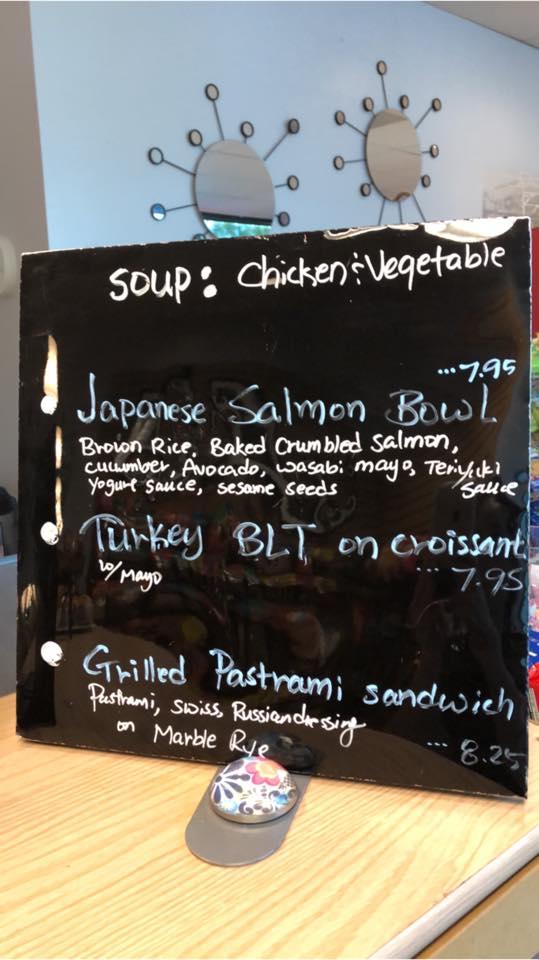 SOUP: Chicken & Vegetable
...7.95
Japanese Salmon Bowl
Brown Rice, Baked Crumbled Salmon,
cucumber, Avocado, wasabi mayo, Teriyaki
Yogurt sauce, sesame seeds Sauce
Turkey BLT on croissant
w/Mayo ...7.95
Grilled Pastrami sandwich
Pastrami, swiss, Russian dressing
on Marble Rye ...8.25